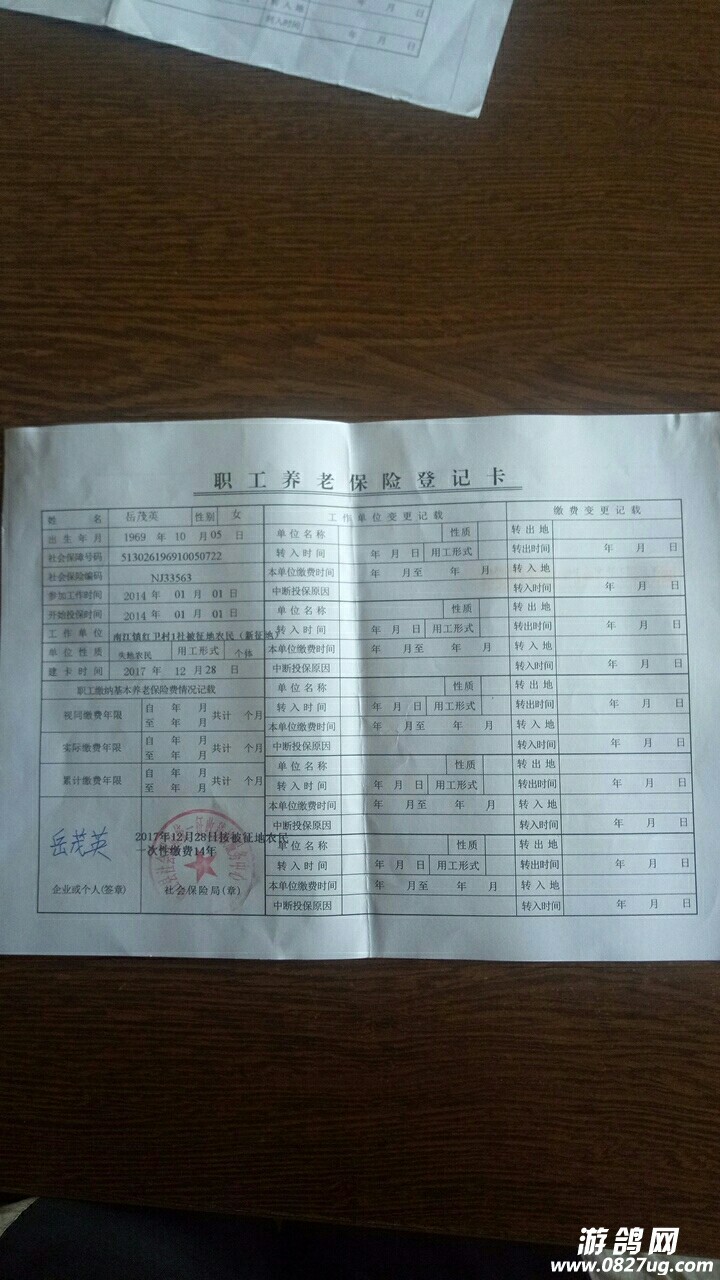 年 月 日
转入地
转入时间 年 月 日
职工养老保险登记卡
姓名 岳茂英 性别 女 工作单位变更记载 缴费变更记载
出生年月 1969 年 10 月 05 日 单位名称 性质 转出地
社会保障号码 513026196910050722 转入时间 年 月 日 用工形式 转出时间 年 月 日
社会保险编码 NJ33563 本单位缴费时间 年 月至 年 月 转入地
参加工作时间 2014 年 01 月 01 日 中断投保原因 转入时间 年 月 日
开始投保时间 2014 年 01 月 01 日 单位名称 性质 转出地
工作单位 南江镇红卫村1社被征地农民（新征地） 转入时间 年 月 日 用工形式 转出时间 年 月 日
单位性质 失地农民 用工形式 个体 本单位缴费时间 年 月至 年 月 转入地
建卡时间 2017 年 12 月 28 日 中断投保原因 转入时间 年 月 日
职工缴纳基本养老保险费情况记载 单位名称 性质 转出地
视同缴费年限 自 年 月 至 年 月 共计 个月 转入时间 年 月 日 用工形式 转出时间 年 月 日
本单位缴费时间 年 月至 年 月 转入地
实际缴费年限 自 年 月 至 年 月 共计 个月 中断投保原因 转入时间 年 月 日
单位名称 性质 转出地
累计缴费年限 自 年 月 至 年 月 共计 个月 转入时间 年 月 日 用工形式 转出时间 年 月 日
本单位缴费时间 年 月至 年 月 转入地
中断投保原因 转入时间 年 月 日
岳茂英 2017年12月28日按被征地农民 单位名称 性质 转出地
一次性缴费14年 转入时间 年 月 日 用工形式 转出时间 年 月 日
企业或个人(签章) 社会保险局(章) 本单位缴费时间 年 月至 年 月 转入地
中断投保原因 转入时间 年 月 日
游鸽网
www.0827ug.com